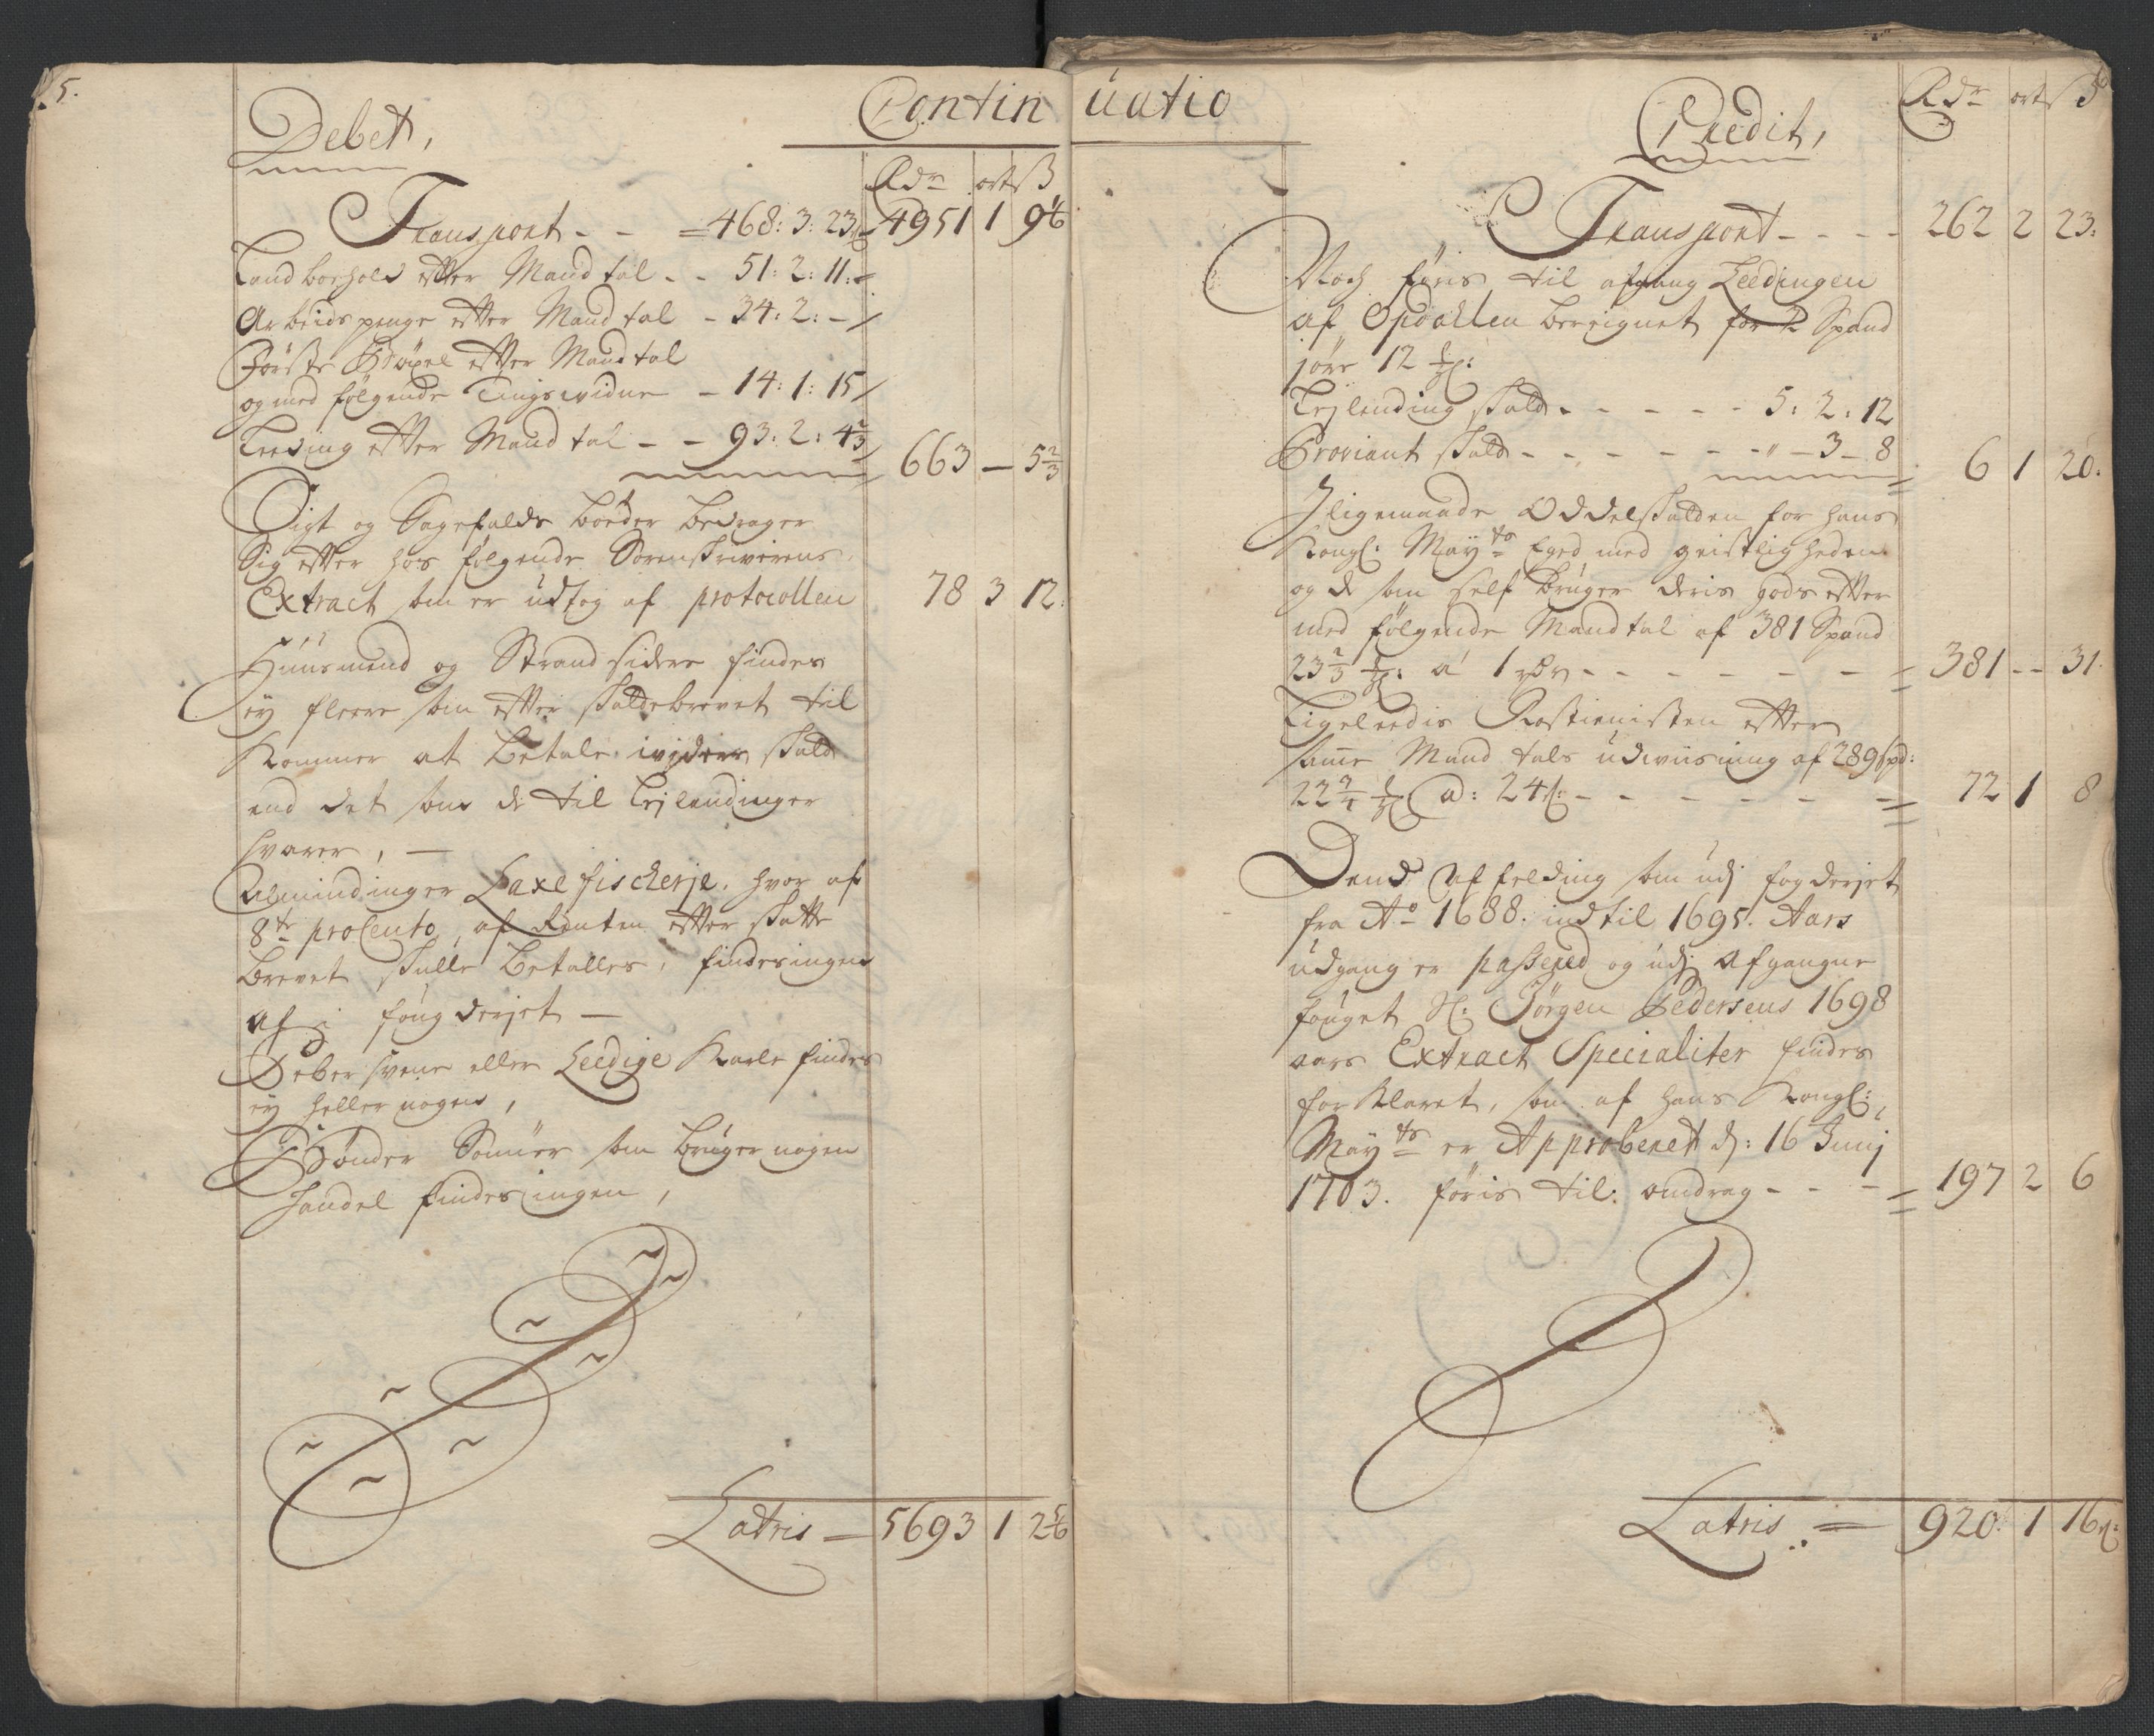 5.
Contin uatio
Debet,
Rdr ort ß
Transport - - = 468: 3: 23 ß 4951 1 9 1/6
Landboehold effter Mandtal - - 51: 2: 11: -
Arbeids penge effter Mandtal - 34: 2: - /
Førster Bøxel effter Mandtal
og med følgende Tingsvidne - 14: 1: 15 /
Leeding effter Mandtal - - 93: 2: 4 2/3 / 663 - 5 2/3
Sigt og Sagefalds bøeder bedrager
Sig effter hos følgende Sorenskriverens
Extract som er udtog af protocollen 78 3 12:
Huusmend og Strandsidere findes
ey fleere som effter skattebrevet til
kommer at betale skatt
end det som de til Lejlendinger
svarer, -
Almindinger Laxefischerje, hvor af
8te procento, af Renten effter skatte
brevet skulle betalles, findes ingen
af i foug derjet -
Deber svene eller Leedige Karle findes
ey heller nogen,
Bønder Sønner som bruger nogen
handel findes ingen,
Latris = 5693 1 2 5/6
Credit,
Rdr ort ß
Transport - - - - 262 2 23:
Noch føris til afgang Leedingen
af Opdallen beregnet for 2 Spand
1 øre 12
Lejlending skatt - - - - - 5: 2: 12
Proviant skatt - - - - - - " - 3 - 8 = 6 1 20:
Iligemaade Oddelskatten for hans
Kongl: Mayts Eget med geistligheden
og de som self bruger deris gods effter
med følgende Mandtal af 381 Spand
23 2/3 : a 1 rdr - - - - - - = 381 - - 31:
Ligeleedis Rostienisten effter
same Mand tals udviisning af 289 Spd:
22 a: 24 ß: - - - - - - = 72 1 8
Dend affelding som udj fogderjet
fra Ao 1688. indtil 1695. Aars
udgang er passered og udj Afgangne
fouget Sl: Jørgen Pedersens 1698
aars Extract Specialiter findes
forklaret, som af hans Kongl:
Mayts er Approberet d: 16 Junj
1703. føris til omdrag - - - = 197 2 6
Latris = 920: 1 16 ß: